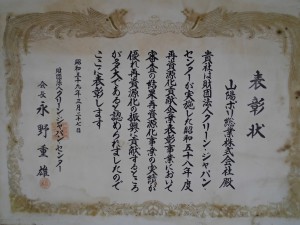 表彰状
山陽ポリ総業株式会社殿
貴社は財団法人クリーン・ジャパン
センターが実施した昭和五十八年度
再資源化貢献企業表彰事業において
審査の結果再資源化事業の実績が
優れ再資源化の振興に貢献するところ
が多大であると認められましたので
ここに表彰します
昭和五十九年三月二十七日
財団法人クリーン・ジャパン・センター
会長 永野重雄